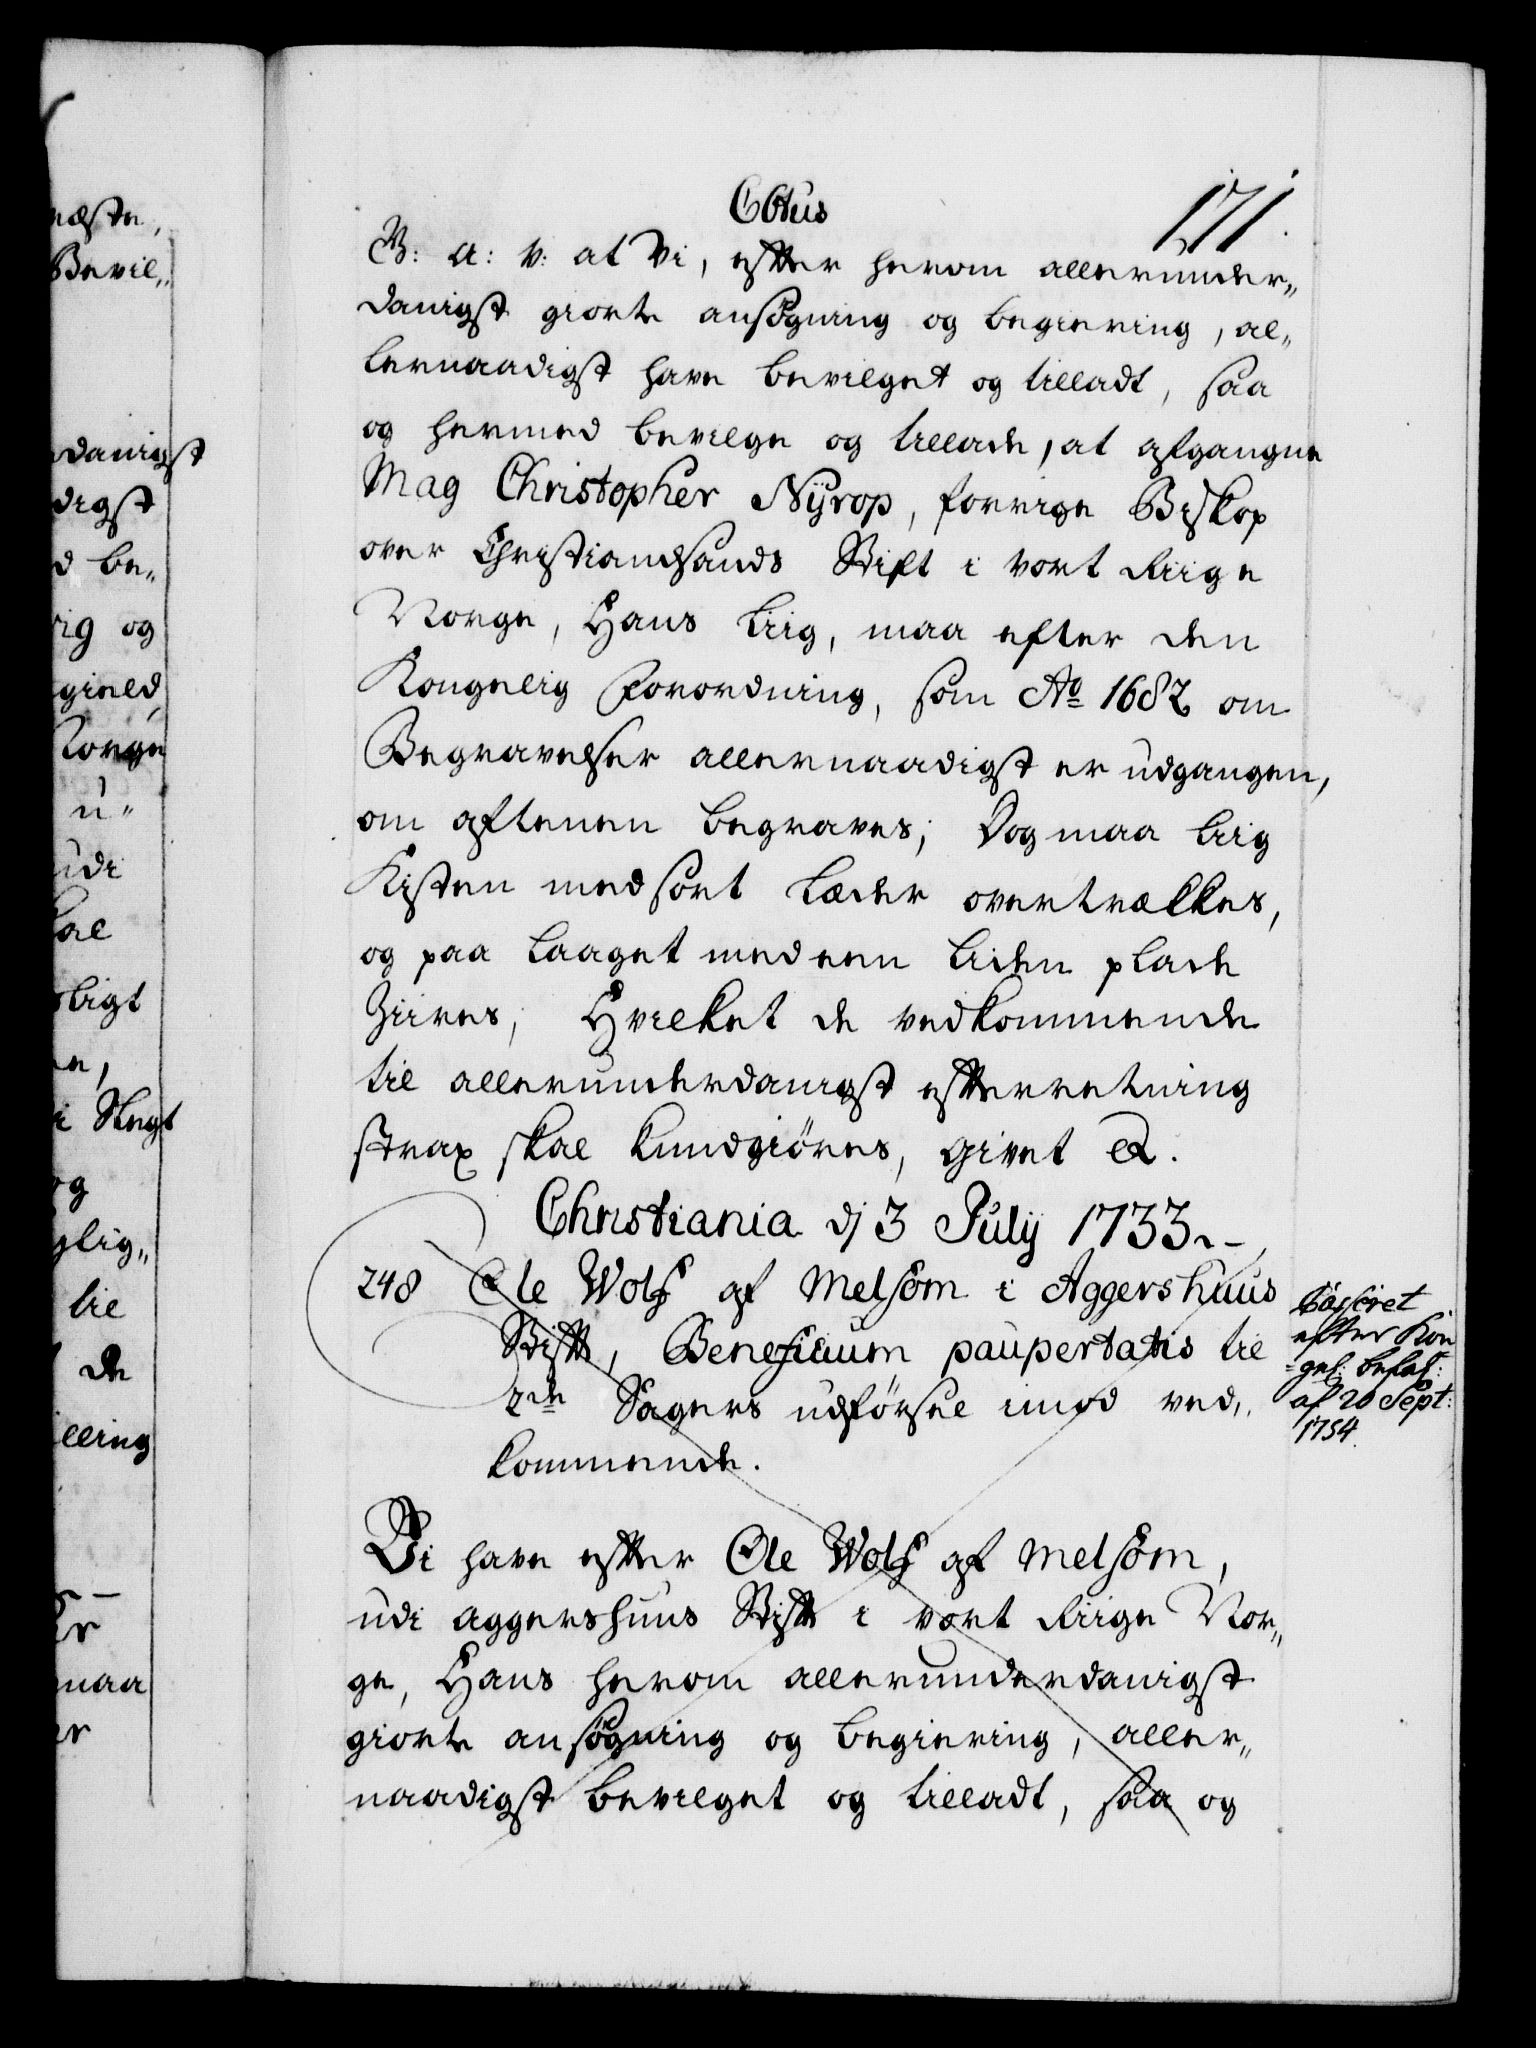 171.
C6tus
G: A: V: at Vi, efter herom allerunder„
danigst giorte ansøgning og begiering, al„
lernaadigst have bevilget og tilladt, saa
og hermed bevilge og tillade, at afgangne
Mag Christopher Nyrop, forrige Biskop
over Christiansands Stift i vort Riige
Norge, Hans Liig, maa efter den
Kongelig Forordning, som Aº 1682 om
Begravelser allernaadigst er udgangen,
om aftenen begraves; Dog maa Liig
Kisten med sort Læder overtrækkes,
og paa Laaget med een liden plade
Ziires; Hvilket de vedkommende
til allerunderdanigst efterretning
strax skal kundgiøres, givet &.
Christiania dj 3 July 1733.
248 Ole Wolf af Melsom i Aggershuus
Stift, Beneficium paupertatis til
2de Sagers udførsel imod ved„
kommende.
Casseret
efter Kon
=gel: befal:
af 20 Sept:
1754.
Vi have efter Ole Wolf af Melsom,
udi Aggershuus Stift i vort Riige Nor„
ge, Hans herom allerunderdanigst
giorte ansøgning og begiering, aller„
naadigst bevilget og tilladt, saa og